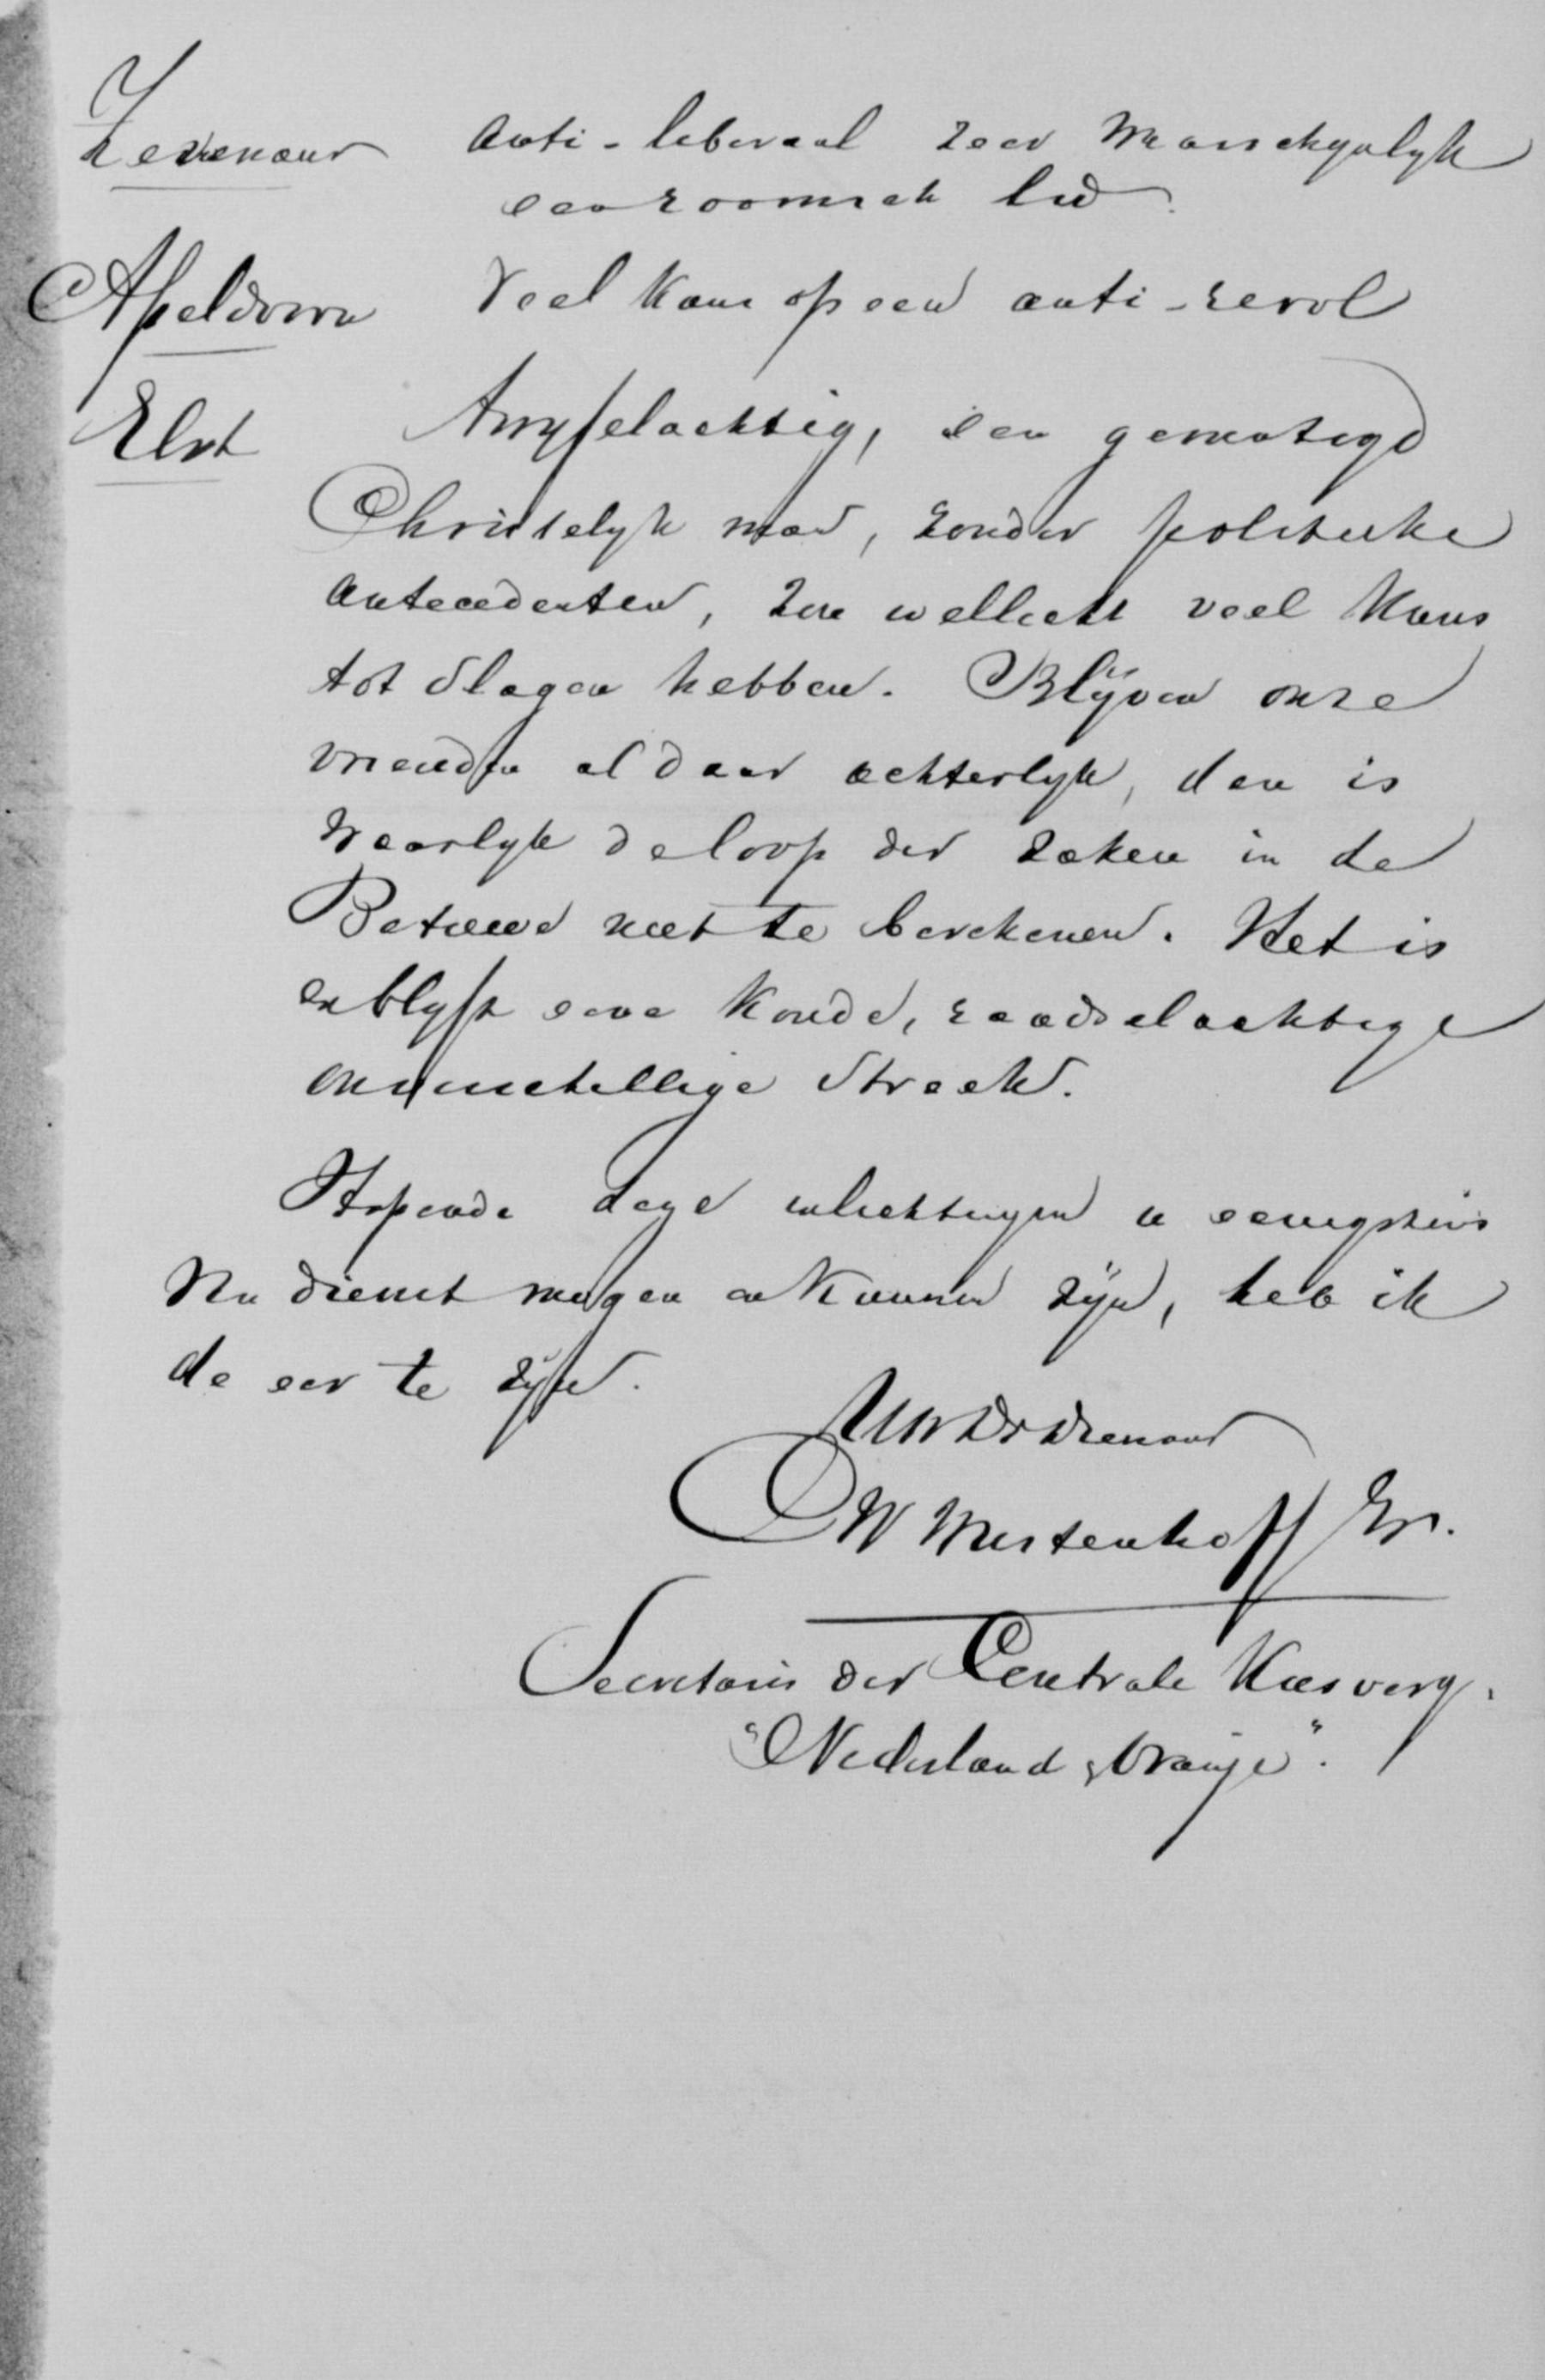 Zevenaar Anti-liberaal zeer Waarschynlyk
een roomsch lid.
Apeldoorn Veel kans op een anti-revol
Elst Twyfelachtig, een gematigd
Christelyk man, zonder politieke
antecedenten, zou wellicht veel kans
tot slagen hebben. Blijven onze
vrienden aldaar achterlyk, dan is
waarlyk de loop der zaken in de
Betuwe niet te berekenen. Het is
en blyft eene koude, raadselachtige
onverschillige streek.
Hopende deze inlichtingen u eenigszins
van dienst mogen en kunnen zijn, heb ik
de eer te zijn.
UwEdDrdienaar
W Westenhoff Jr.
Secretaris der Centrale Kiesverg.
"Nederland & Oranje".